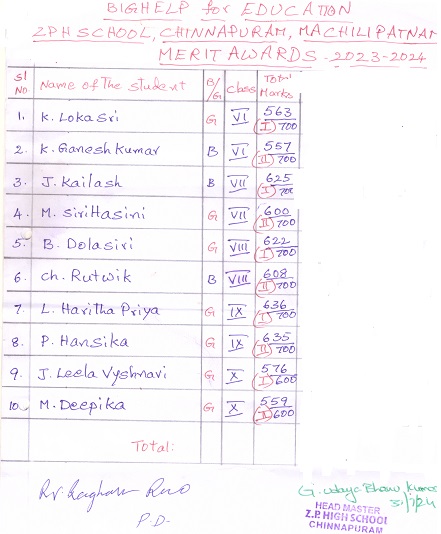 BIGHELP for EDUCATION
ZPH SCHOOL, CHINNAPURAM, MACHILIPATNAM
MERIT AWARDS - 2023-2024
Sl No Name of The Student B/G Class Total Marks
1. K. Loka Sri G VI 563/700 (I)
2. K. Ganesh Kumar B VI 557/700 (II)
3. J. Kailash B VII 625/700 (I)
4. M. Siri Hasini G VII 600/700 (II)
5. B. Dolasiri G VIII 622/700 (I)
6. Ch. Rutwik B VIII 608/700 (II)
7. L. Haritha Priya G IX 636/700 (I)
8. P. Hansika G IX 635/700 (II)
9. J. Leela Vyshnavi G X 576/600 (I)
10. M. Deepika G X 559/600
Total:
RV. Raghava Rao
P.D.
G. Udaya Bhanu Kumar
HEAD MASTER
Z.P. HIGH SCHOOL
CHINNAPURAM